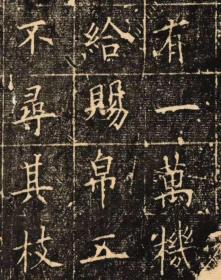 有一萬機
給賜帛五
不尋其枝